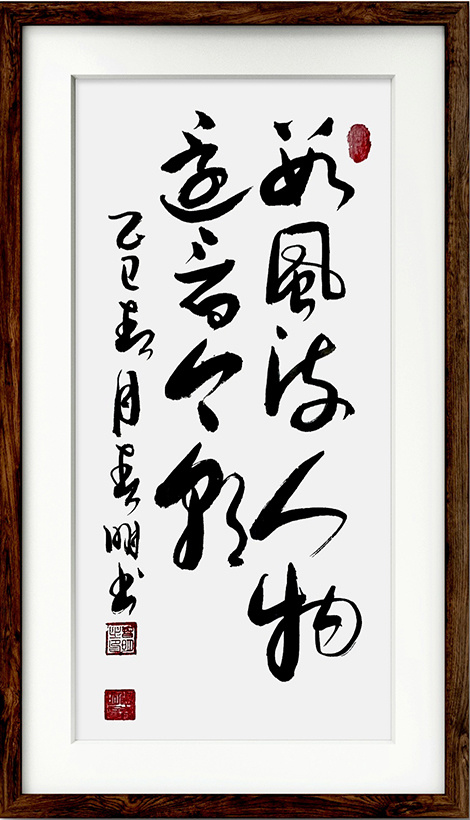 数風流人物
还看今朝
乙巳春月春明书